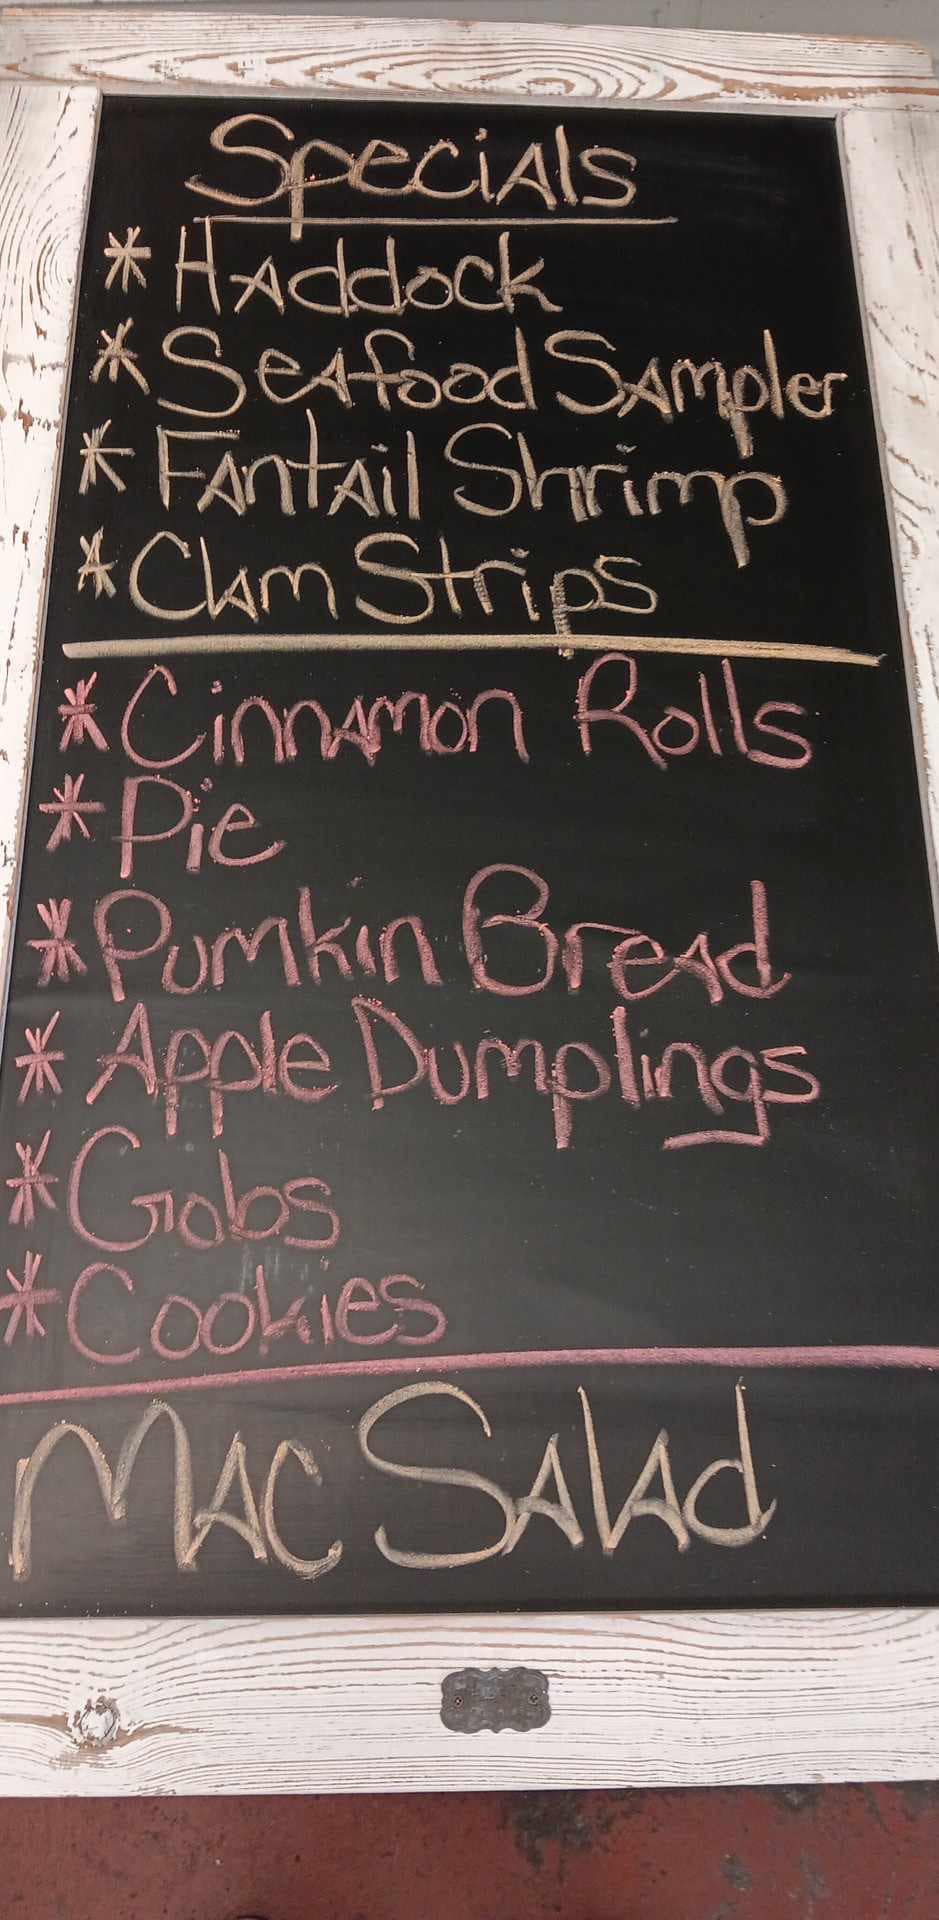 Specials
* Haddock
* Seafood Sampler
* Fantail Shrimp
* Clam Strips
* Cinnamon Rolls
* Pie
* Pumkin Bread
* Apple Dumplings
* Gobs
* Cookies
Mac Salad